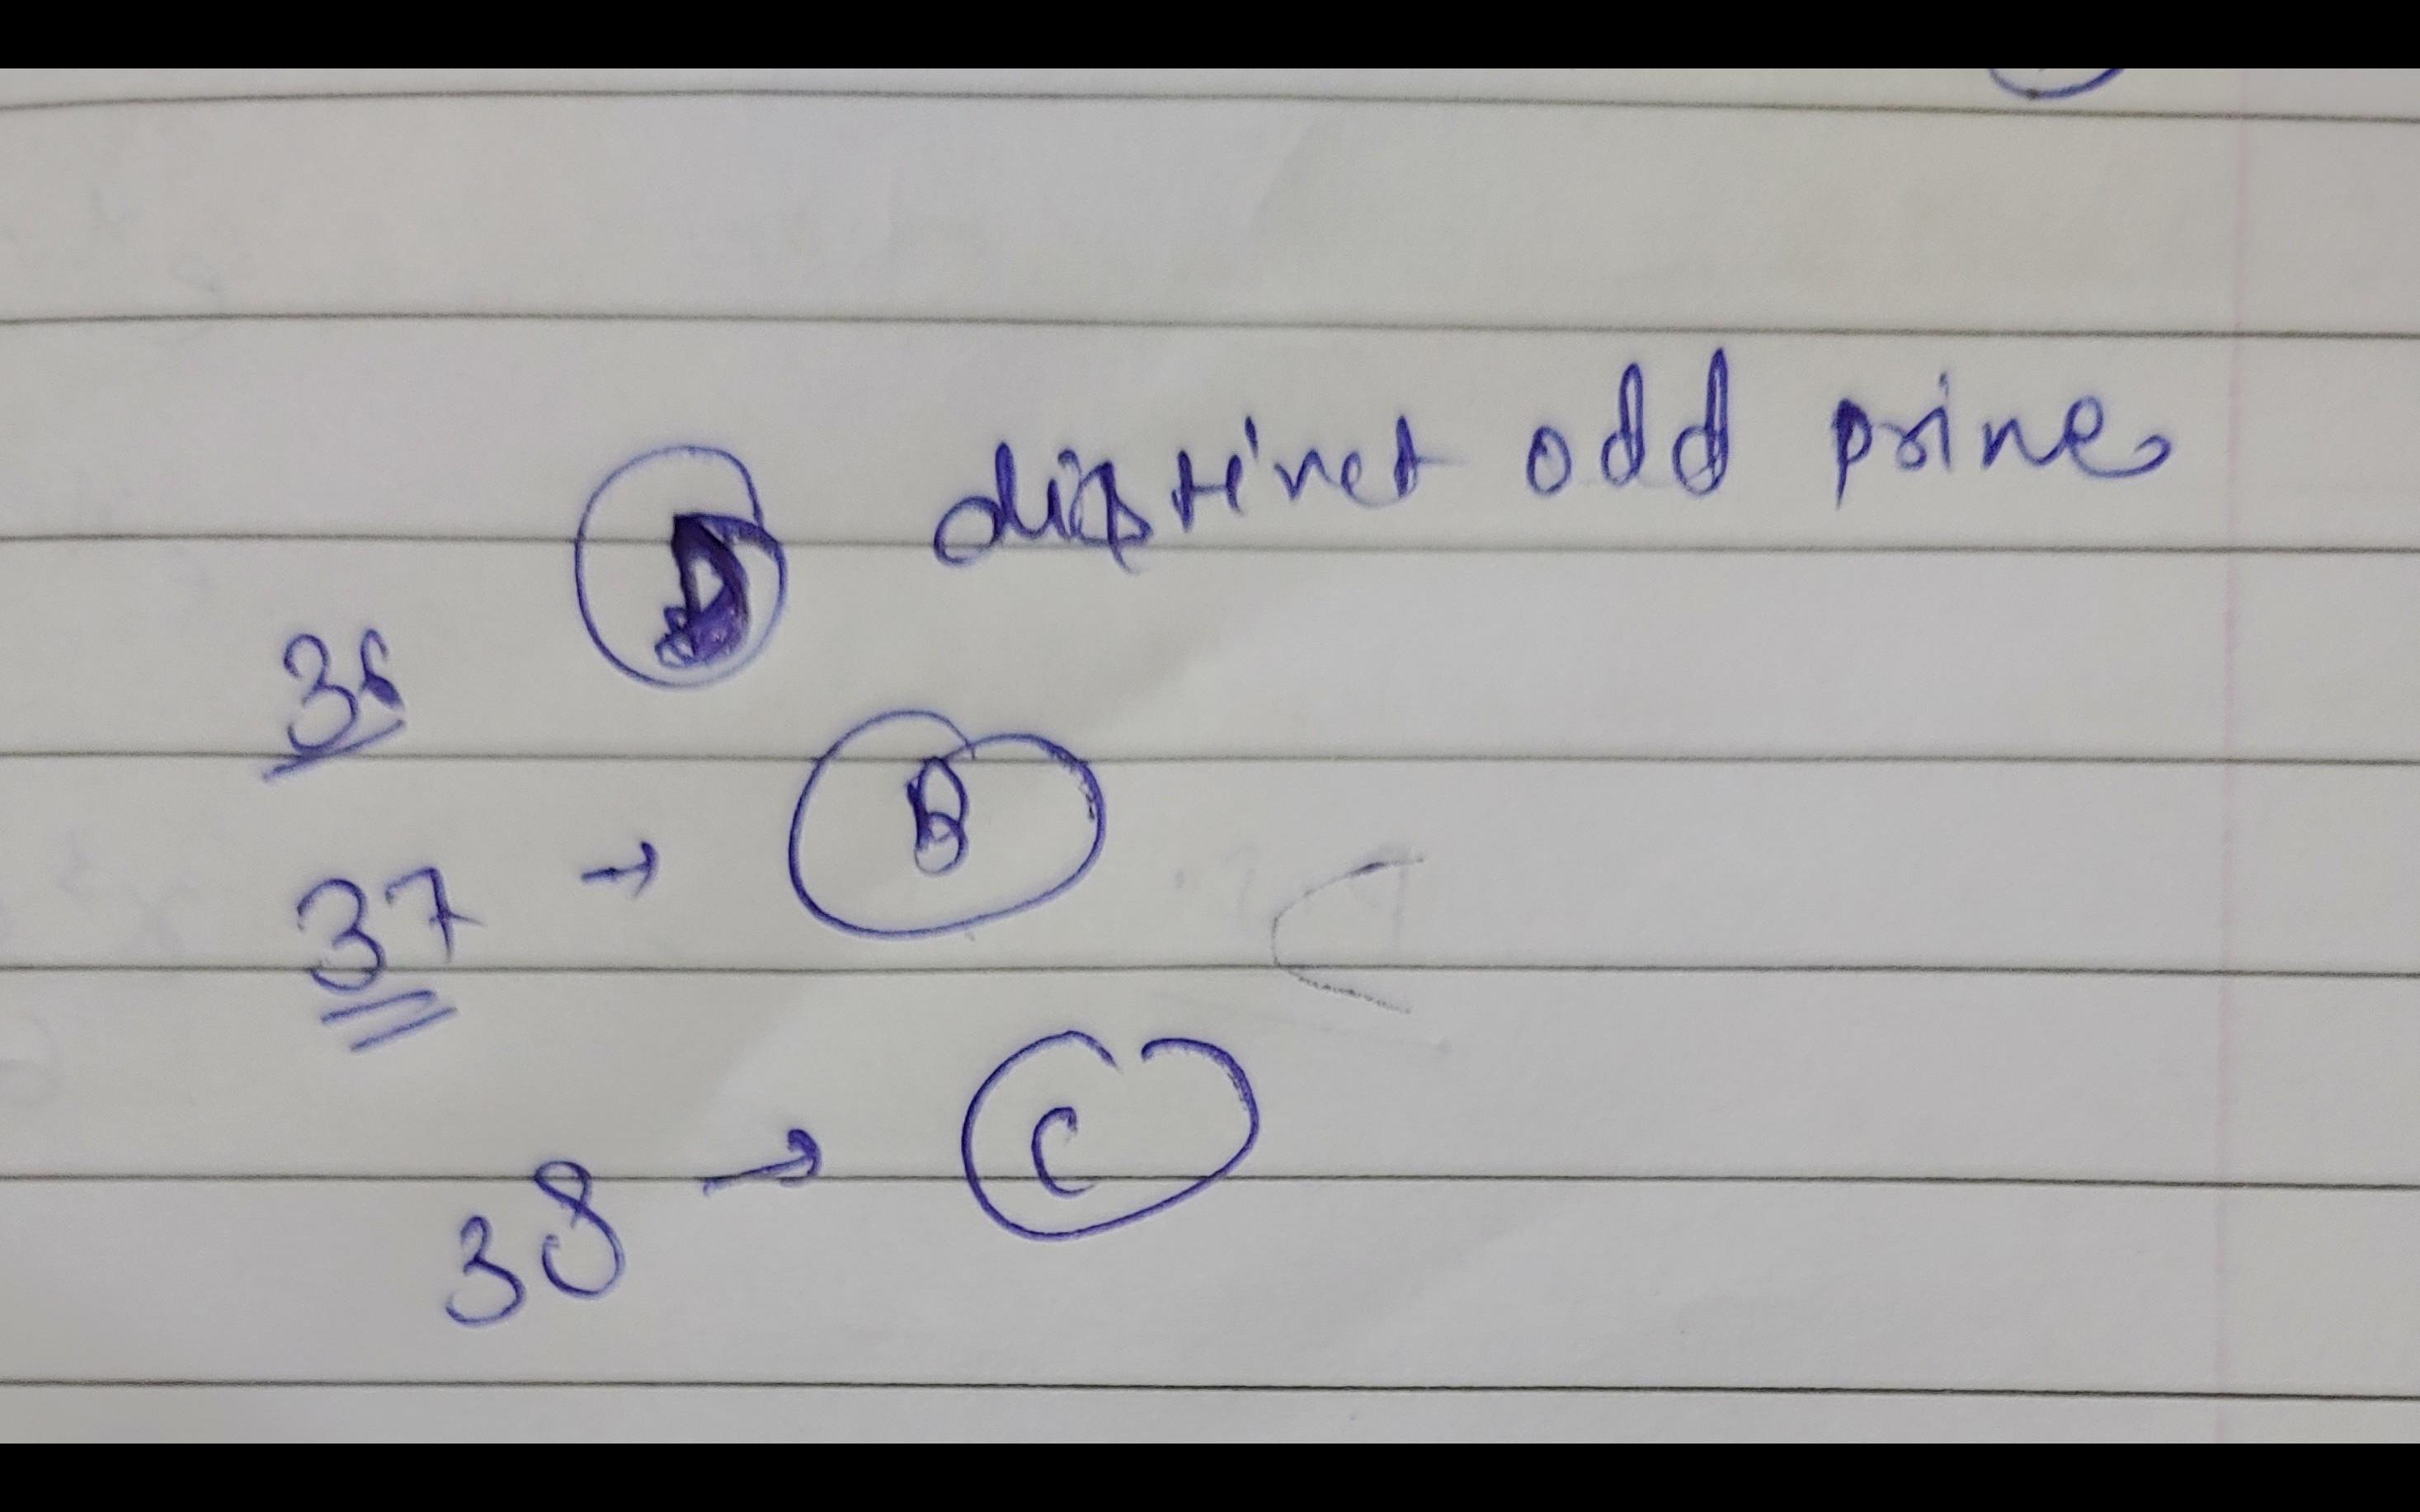 36 D distinct odd prime
37 → B
38 → C